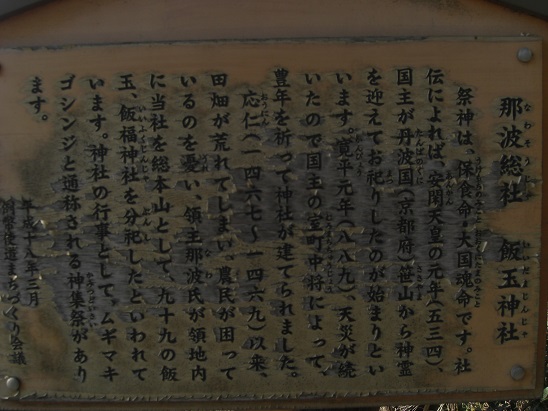 那波総社 飯玉神社
祭神は、保食命・大国魂命です。社
伝によれば、安閑天皇の元年(五三四)、
国主が丹波国(京都府)笹山から神霊
を迎えてお祀りしたのが始まりとい
います。寛平元年(八八九)、天災が続
いたので国主の室町中将によって、
豊年を祈って神社が建てられました。
応仁(一四六七〜一四六九)以来、
田畑が荒れてしまい、農民が困って
いるのを憂い、領主那波氏が領地内
に当社を総本山として、九十九の飯
玉、飯福神社を分祀したといわれて
います。神社の行事として、ムギマキ
ゴシンジと通称される神集祭があり
ます。
平成十八年三月
まちづくり会議